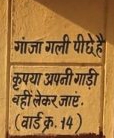 गांजा गली पीछे है
कृपया अपनी गाड़ी
वहीं लेकर जाएं.
(वार्ड क्र. 14)